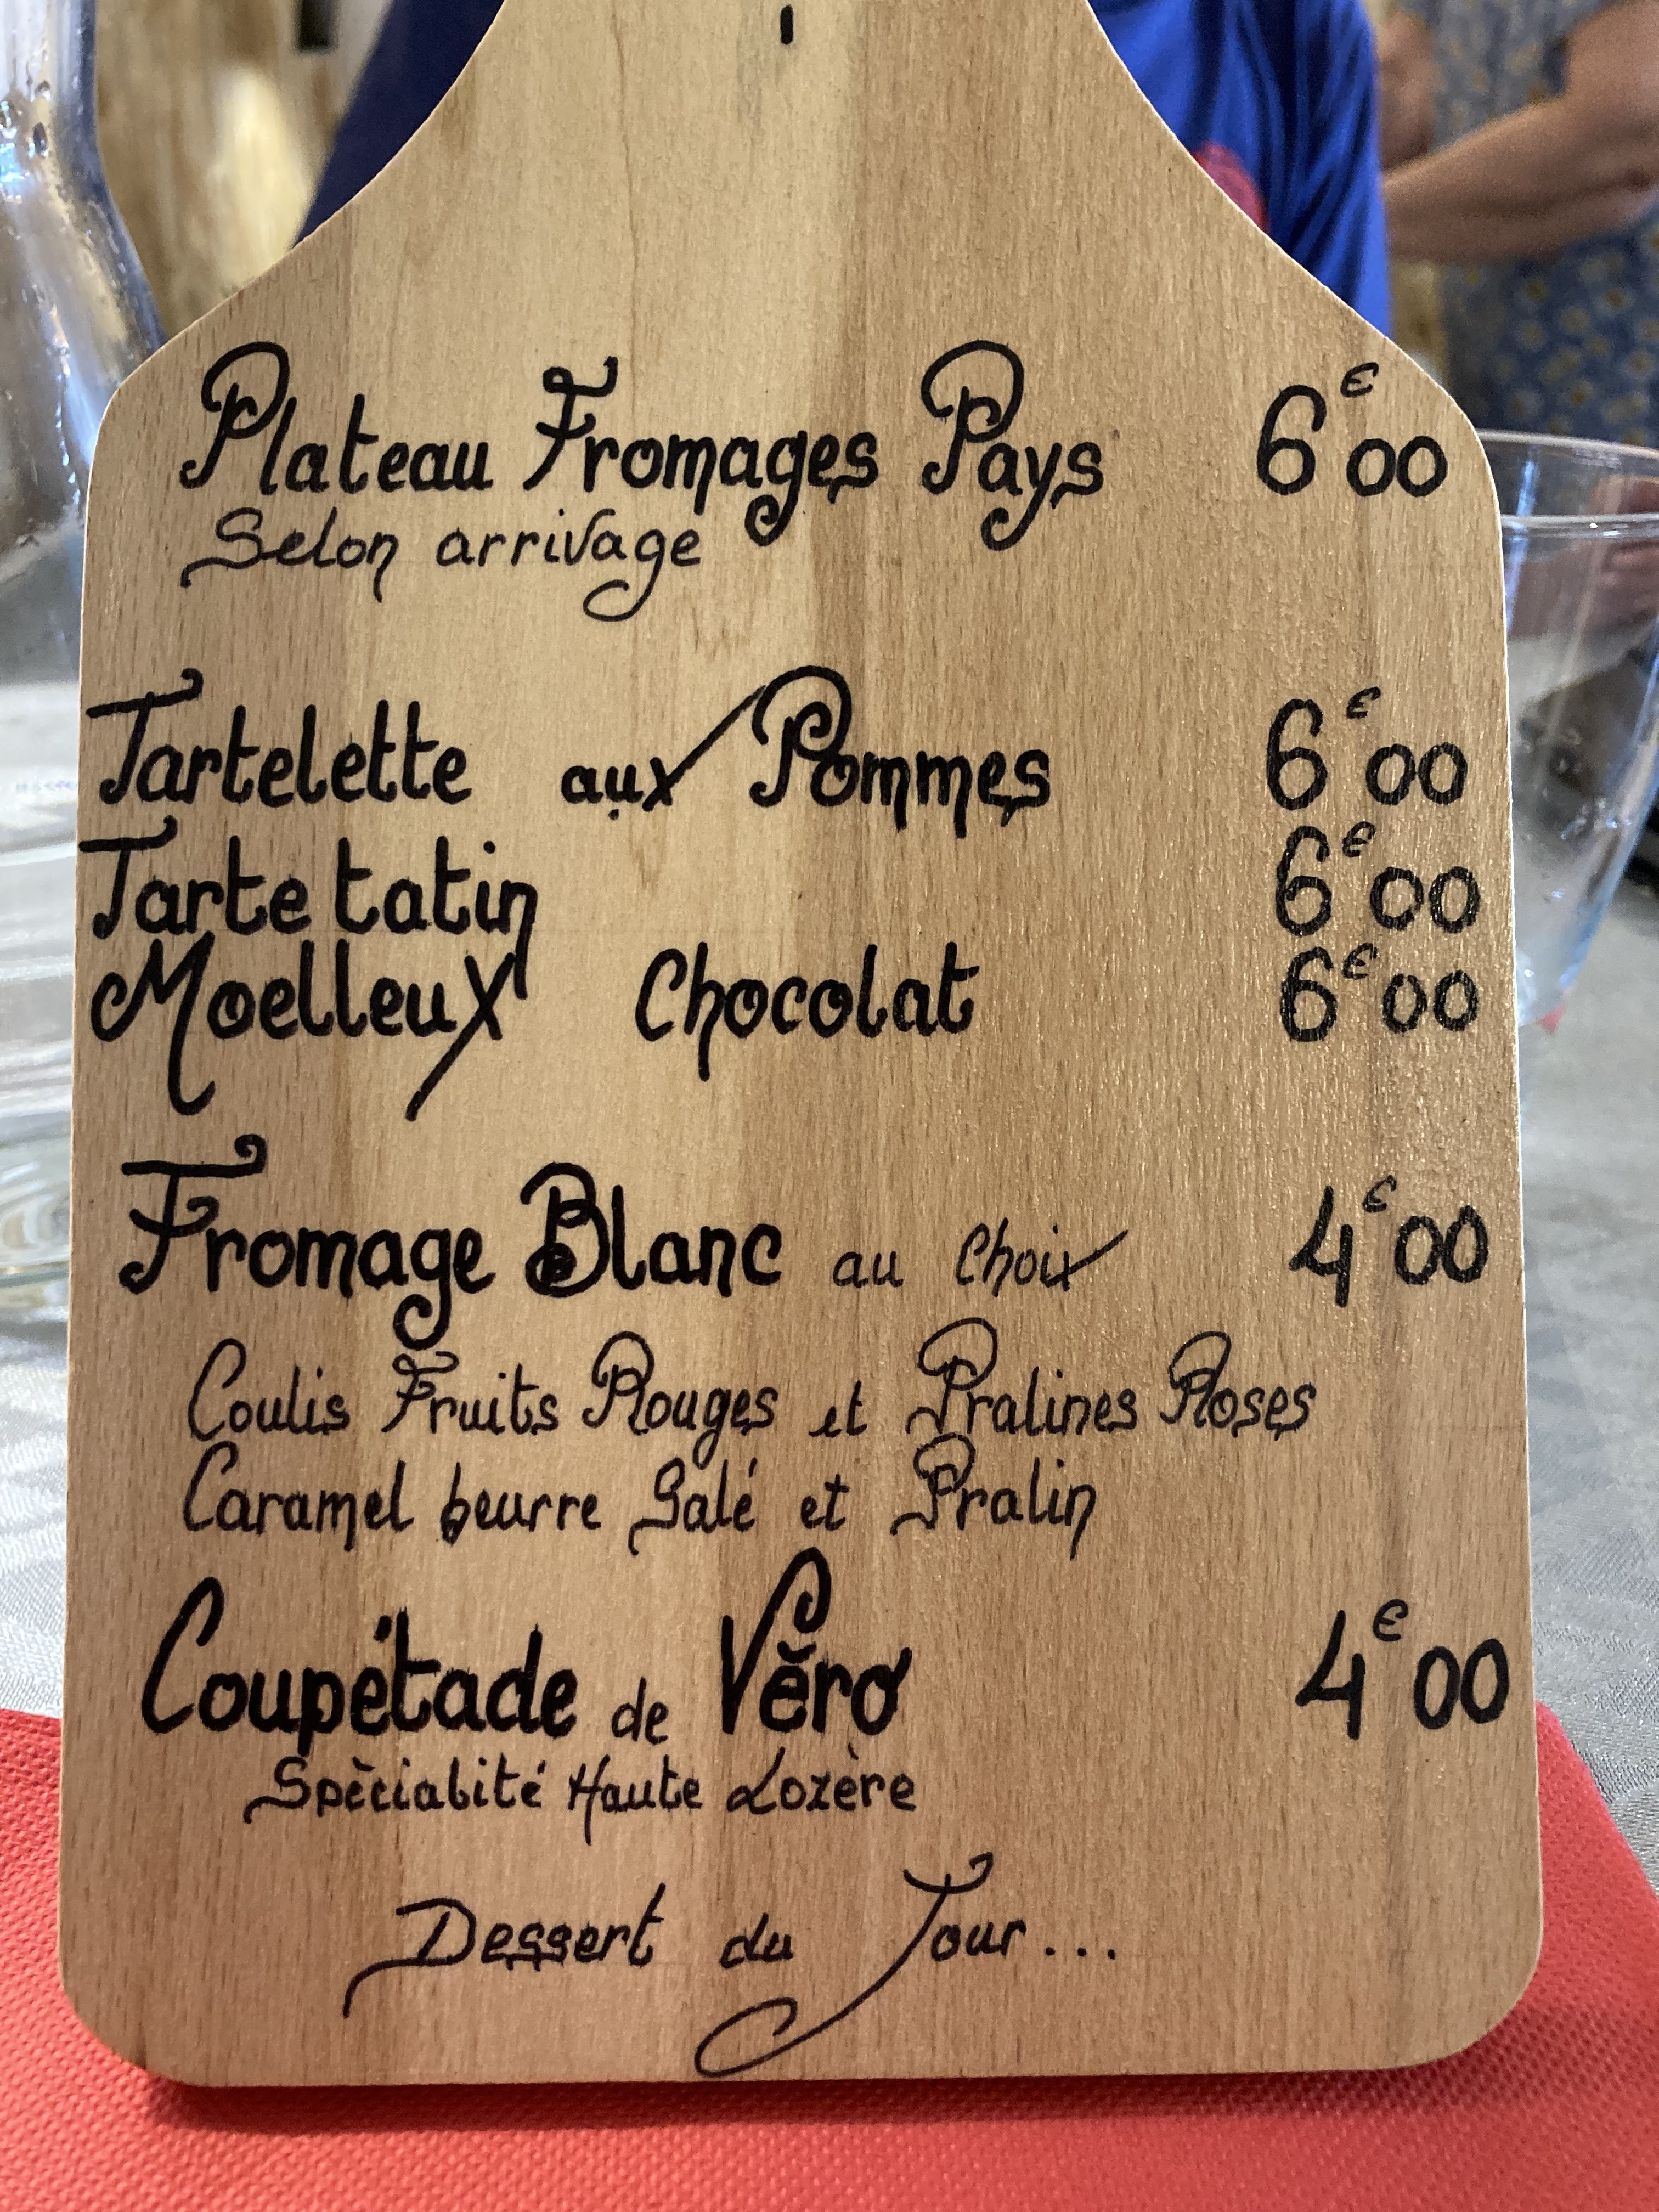 Plateau Fromages Pays 6€00
Selon arrivage
Tartelette aux Pommes 6€00
Tarte tatin 6€00
Moelleux Chocolat 6€00
Fromage Blanc au Choix 4€00
Coulis Fruits Rouges et Pralines Roses
Caramel beurre Salé et Pralin
Coupétade de Véro 4€00
Spècialité Haute Lozère
Dessert du Jour...